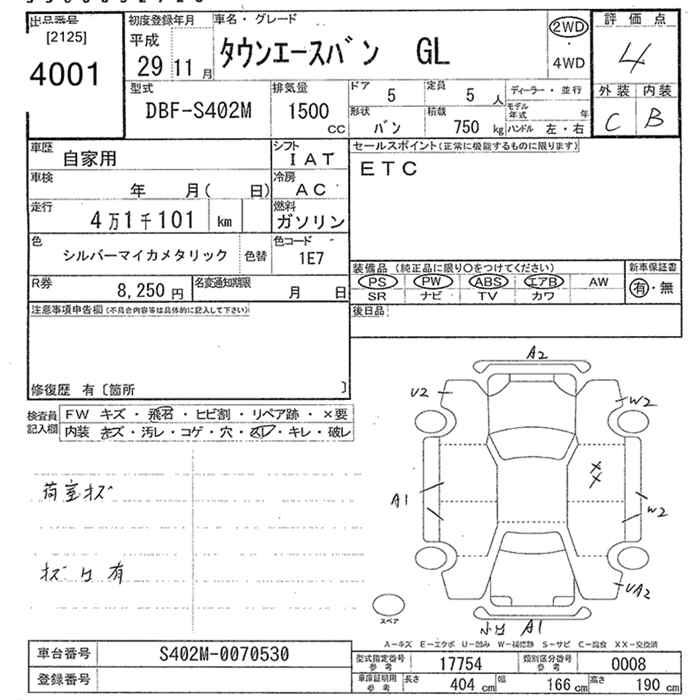 出品番号
[2125]
4001
初度登録年月
平成
29 11 月
車名・グレード
タウンエースバン GL
2WD
・
4WD
評価点
4
外装 内装
C B
型式
DBF-S402M
排気量
1500
cc
ドア 5
定員 5 人
ディーラー・並行
形状 バン
積載 750 kg
モデル年式 年
ハンドル 左・右
車歴 自家用
シフト IAT
セールスポイント(正常に機能するものに限ります)
ETC
車検 年 月( 日)
冷房 AC
走行 4万1千101 km
燃料 ガソリン
色 シルバーマイカメタリック 色替
色コード 1E7
R券 8,250 円
名変通知期限 月 日
装備品 (純正品に限り○をつけてください)
新車保証書
PS PW ABS エアB AW
有・無
SR ナビ TV カワ
後日品
注意事項申告欄(不具合内容等は具体的に記入して下さい)
修復歴 有〔箇所 〕
検査員記入欄
FW キズ・飛石・ヒビ割・リペア跡・×要
内装 キズ・汚レ・コゲ・穴・スレ・キレ・破レ
荷室キズ
キズ凹有
A2
U2
W2
A1
XX
W2
UA2
A1
スペア
A-キズ E-エクボ U-凹み W-補修跡 S-サビ C-腐食 XX-交換済
車台番号 S402M-0070530
登録番号
型式指定番号参考 17754
類別区分番号参考 0008
車庫証明用参考 長さ 404 cm 幅 166 cm 高さ 190 cm